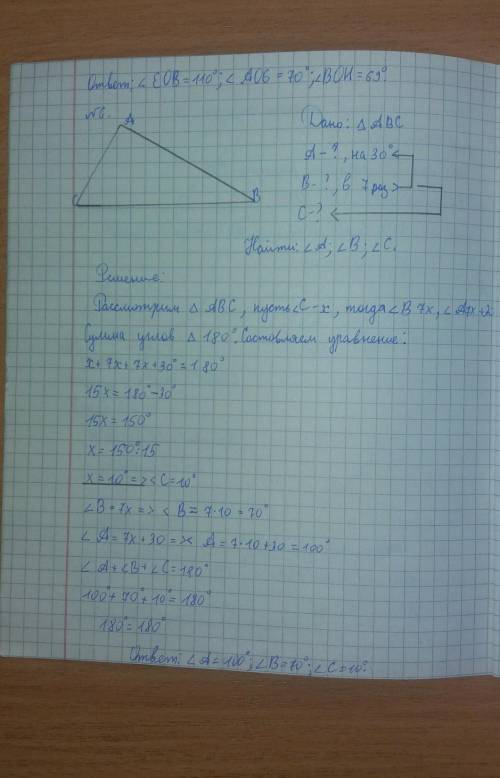 Ответ: ∠EOB = 110°; ∠AOB = 70°; ∠BOH = 69°
№6.
A
C
B
Дано: △ABC
A-?, на 30°
B-?, в 7 раз >
C-?
Найти: ∠A; ∠B; ∠C.
Решение:
Рассмотрим △ ABC, пусть ∠C - x, тогда ∠B 7x, ∠A 7x+
Сумма углов △ 180°. Составляем уравнение:
x + 7x + 7x + 30° = 180°
15x = 180° - 30°
15x = 150°
x = 150°:15
x = 10° => <C = 10°
∠B + 7x => <B = 7·10 = 70°
∠A = 7x + 30 => < A = 7·10 + 30 = 100°
∠A + ∠B + ∠C = 180°
100° + 70° + 10° = 180°
180° = 180°
Ответ: ∠A = 100°; ∠B = 70°; ∠C = 10°.